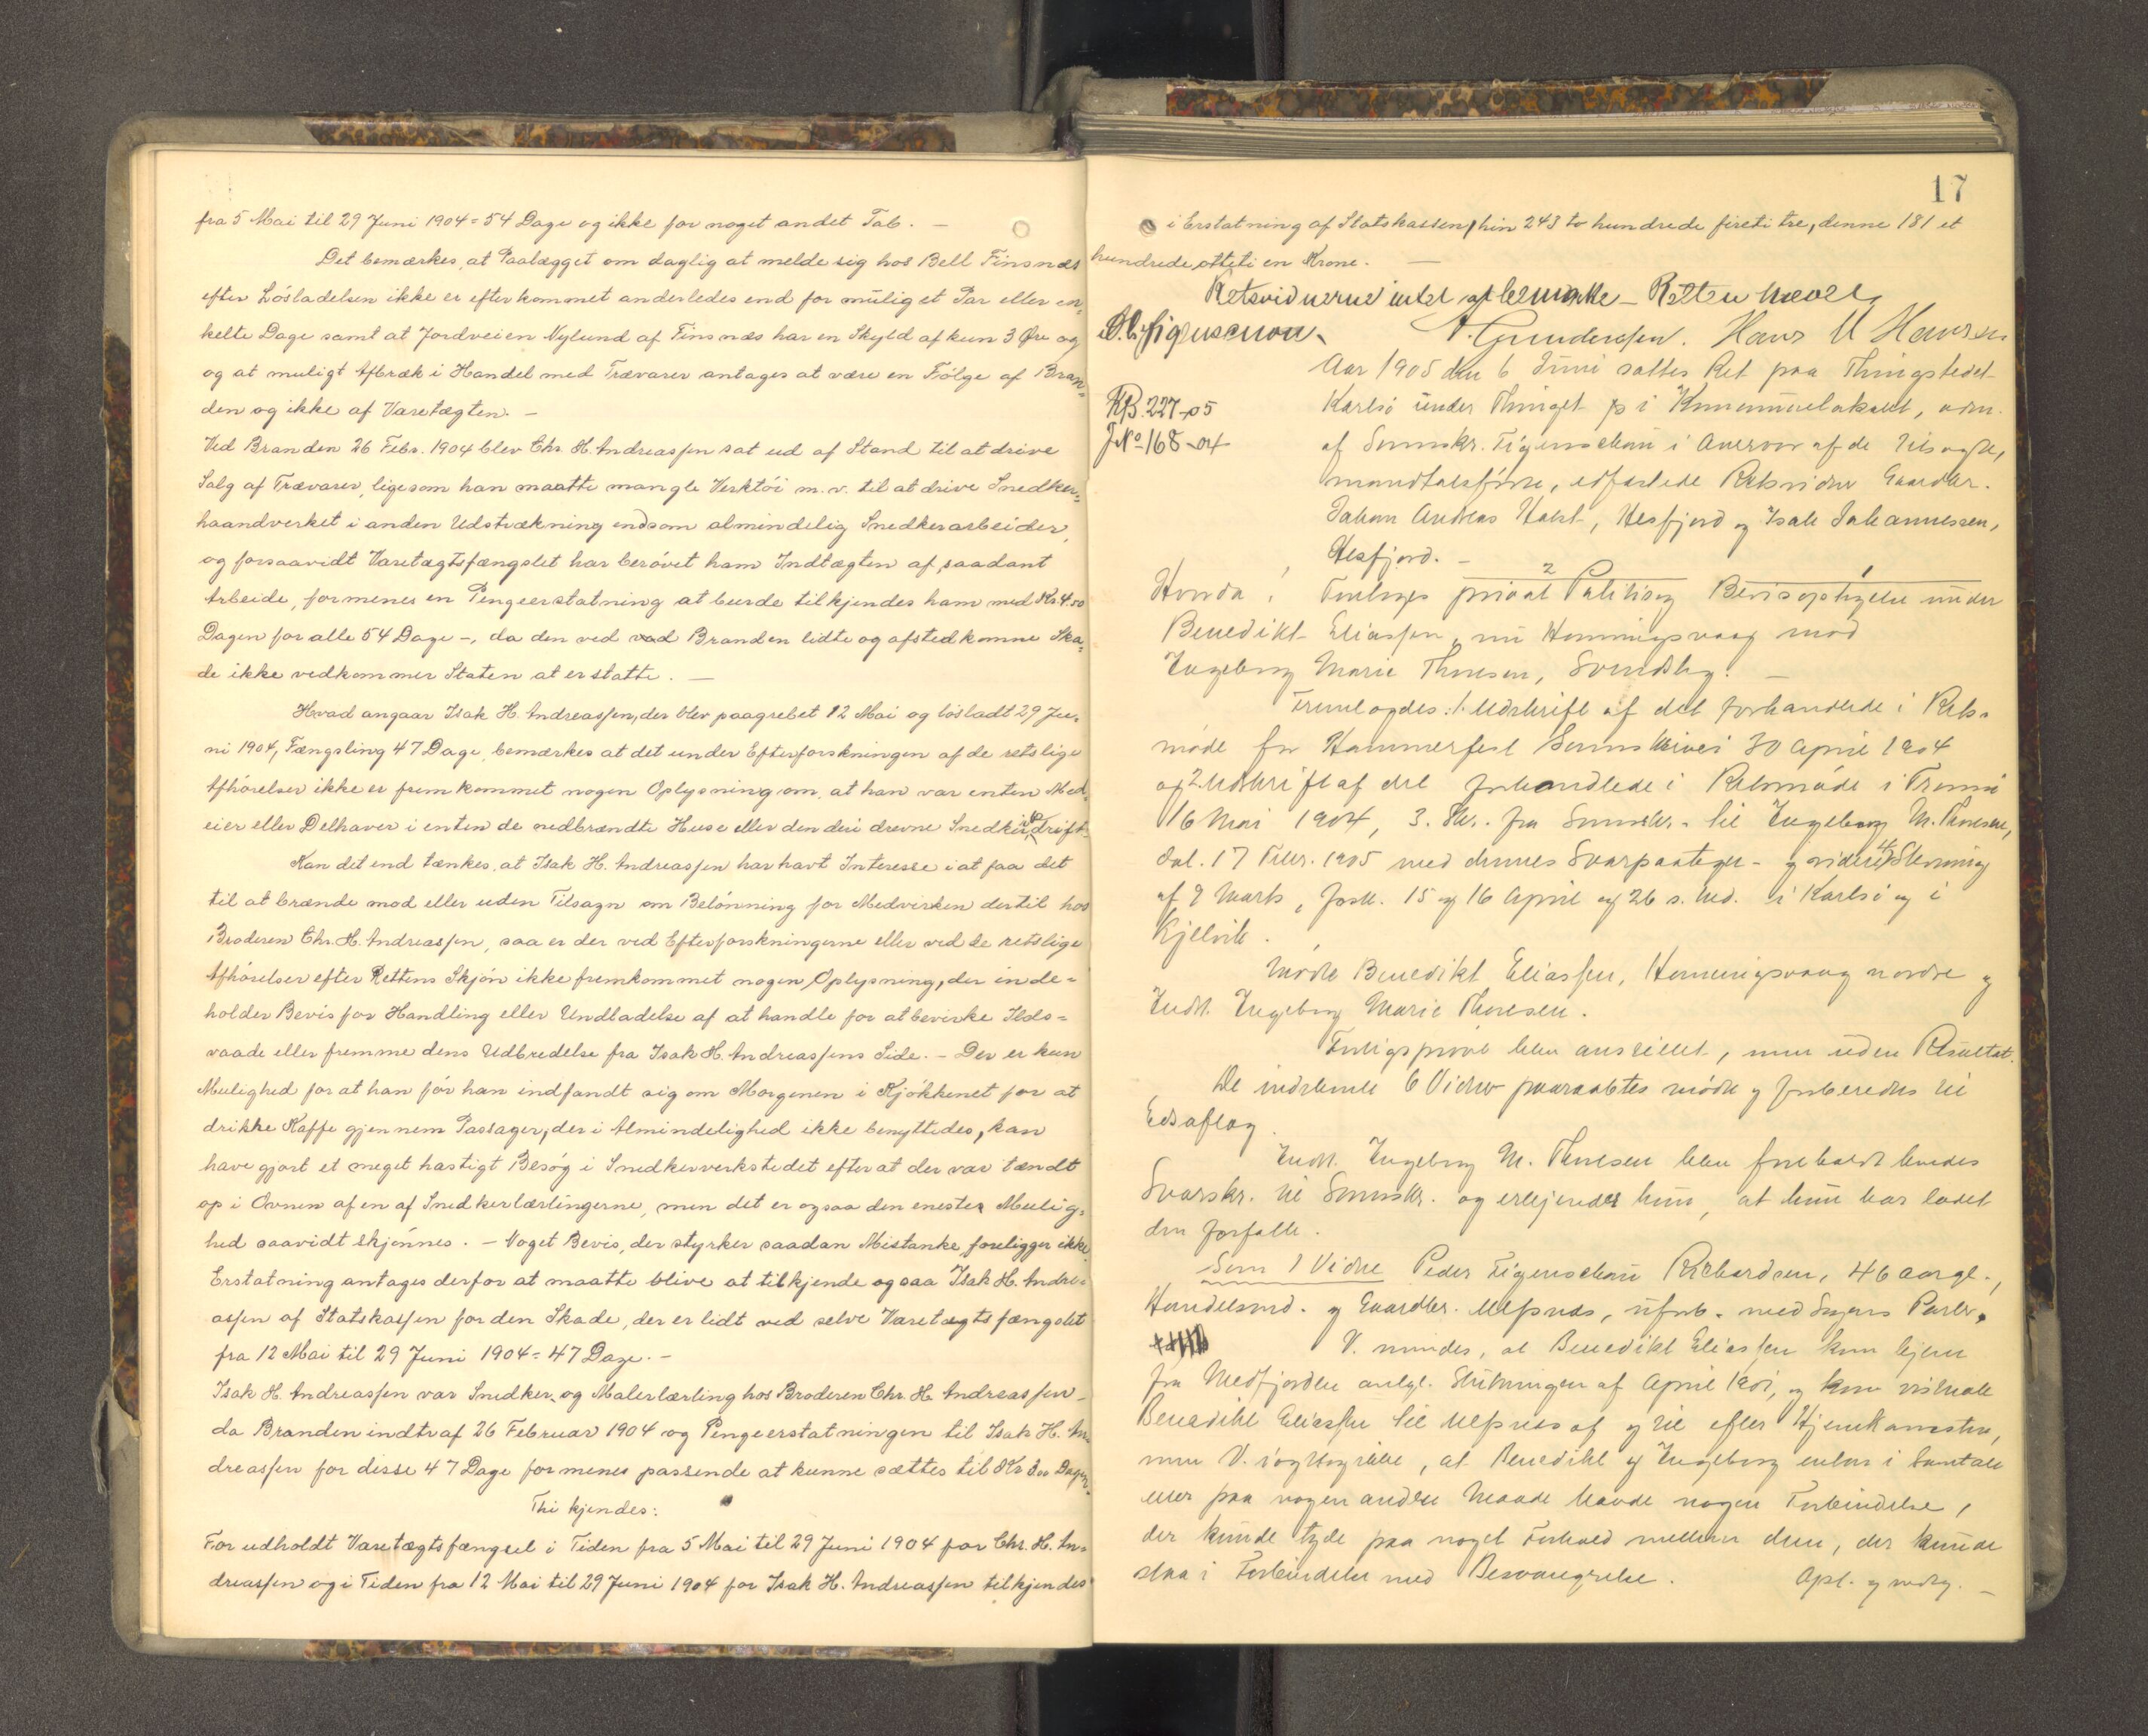 fra 5 Mai til 29 Juni 1904 = 54 Dage og ikke for noget andet Tab. —
Det bemærkes, at Paalægget om daglig at melde sig hos Bell Finsnæs
efter Lösladelsen ikke er efterkommet anderledes end for muligt et Par eller en-
kelte Dage samt at Jordveien Nylund af Finsnæs har en Skyld af kun 3 Øre og
og at muligt Afbræk i Handel med Trævarer antages at være en Fölge af Bran-
den og ikke af Varetægten. —
Ved Branden 26 Febr. 1904 blev Chr. H. Andreassen sat ud af Stand til at drive
Salg af Trævarer, ligesom han maatte mangle Verktöi m. v. til at drive Snedker-
haandverket i anden Udstrækning end som almindelig Snedkerarbeider,
og forsaavidt Varetægtsfængslet har berövet ham Indtægten af saadant
Arbeide, formenes en Pengeerstatning at burde tilkjendes ham med Kr. 4.50
Dagen for alle 54 Dage —, da den ved Branden lidte og afstedkomne Ska-
de ikke vedkommer Staten at erstatte. —
Hvad angaar Isak H. Andreassen, der blev paagrebet 12 Mai og lösladt 29 Ju-
ni 1904, Fængsling 47 Dage, bemærkes at det under Efterforskningen af de retslige
Afhörelser ikke er fremkommet nogen Oplysning om, at han var enten Med-
eier eller Delhaver i enten de nedbrændte Huse eller den deri drevne Snedkerdrift.
Kan det end tænkes, at Isak H. Andreassen har havt Interesse i at faa det
til at brænde mod eller uden Tilsagn om Belönning for Medvirken dertil hos
Broderen Chr. H. Andreassen, saa er der ved Efterforskningerne eller ved de retslige
Afhörelser efter Rettens Skjön ikke fremkommet nogen Oplysning, der inde-
holder Bevis for Handling eller Undladelse af at handle for at bevirke Ilds-
vaade eller fremme dens Udbredelse fra Isak H. Andreassens Side. — Der er kun
Mulighed for at han för han indfandt sig om Morgenen i Kjökkenet for at
drikke Kaffe gjennem Passager, der i Almindelighed ikke benyttedes, kan
have gjort et meget hastigt Besög i Snedkerverkstedet efter at der var tændt
op i Ovnen af en af Snedkerlærlingerne, men det er ogsaa den eneste Mulig-
hed saavidt skjönnes. — Noget Bevis, der styrker saadan Mistanke foreligger ikke.
Erstatning antages derfor at maatte blive at tilkjende ogsaa Isak H. Andre-
assen af Statskassen for den Skade, der er lidt ved selve Varetægtsfængslet
fra 12 Mai til 29 Juni 1904 = 47 Dage. —
Isak H. Andreassen var Snedker- og Malerlærling hos Broderen Chr. H. Andreassen —
da Branden indtraf 26 Februar 1904 og Pengeerstatningen til Isak H. An-
dreassen for disse 47 Dage formenes passende at kunne sættes til Kr 3.00 Dagen.
Thi kjendes:
For udholdt Varetægtsfængsel i Tiden fra 5 Mai til 29 Juni 1904 for Chr. H. An-
dreassen og i Tiden fra 12 Mai til 29 Juni 1904 for Isak H. Andreassen tilkjendes
17
i Erstatning af Statskassen, hin 243 to hundrede fireti tre, denne 181 et
hundrede otteti en Krone. —
Retsvidnerne intet at bemærke — Retten hævet
O. Figenschou. A. Gundersen. Hans M Hansen
Aar 1905 den 6 Juni sattes Ret paa Thingstedet
KB. 227-05
J. No 168-04
Karlsö under Thinget i Kommunelokalet, adm.
af Sorenskr. Figenschou i Overvær af de tilsagte,
mandtalsförte, edfæstede Retsvidner Gaardbr.
Johan Andreas Holst, Hesfjord og Isak Johannessen,
Hesfjord. —
Hvorda:
Foretoges 2 privat Politisag 1 Bevisoptagelse under
Benedikt Eliassen, nu Honningsvaag mod
Ingeborg Marie Thoresen, Svendsby. —
Fremlagdes: 1. Udskrift af det forhandlede i Rets-
möde for Hammerfest Sorenskriveri 30 April 1904
og 2. Udskrift af det forhandlede i Retsmöde i Tromsö
16 Mai 1904, 3. Skr. fra Sorenskr. til Ingeborg M. Thoresen,
dat. 17 Febr. 1905 med dennes Svarpaategn. og videre 4) Stevning
af 9 Marts, fork. 15 og 16 April og 26 s. Md. i Karlsö og i
Kjelvik.
Mödte Benedikt Eliassen, Honningsvaag nordre og
Indst. Ingeborg Marie Thoresen.
Forligspröve blev anstillet, men uden Resultat.
De indstevnte 6 Vidner paaraabtes mödte og forberedtes til
Edsaflæg.
Indst. Ingeborg M. Thoresen blev foreholdt hendes
Svarskr. til Sorenskr. og erkjender hun, at hun har ladet
den forfatte.
Som 1 Vidne Peder Figenschou Richardsen, 46 aar gl.,
Handelsmd. og Gaardbr. Ulfsnæs, ubesl. med Sagens Parter.
V. mindes, at Benedikt Eliassen kom hjem
fra Nedfjorden antgl. Slutningen af April 1901, og kom
Benedikt Eliassen til Ulfsnæs af og til efter Hjemkomsten,
men V. iagttog ikke, at Benedikt og Ingeborg enten i Samtale
eller paa nogen anden Maade havde nogen Forbindelse,
der kunde tyde paa noget Forhold mellem dem, der kunde
staa i Forbindelse med Besvangrelse. Opl. og vedtg. —